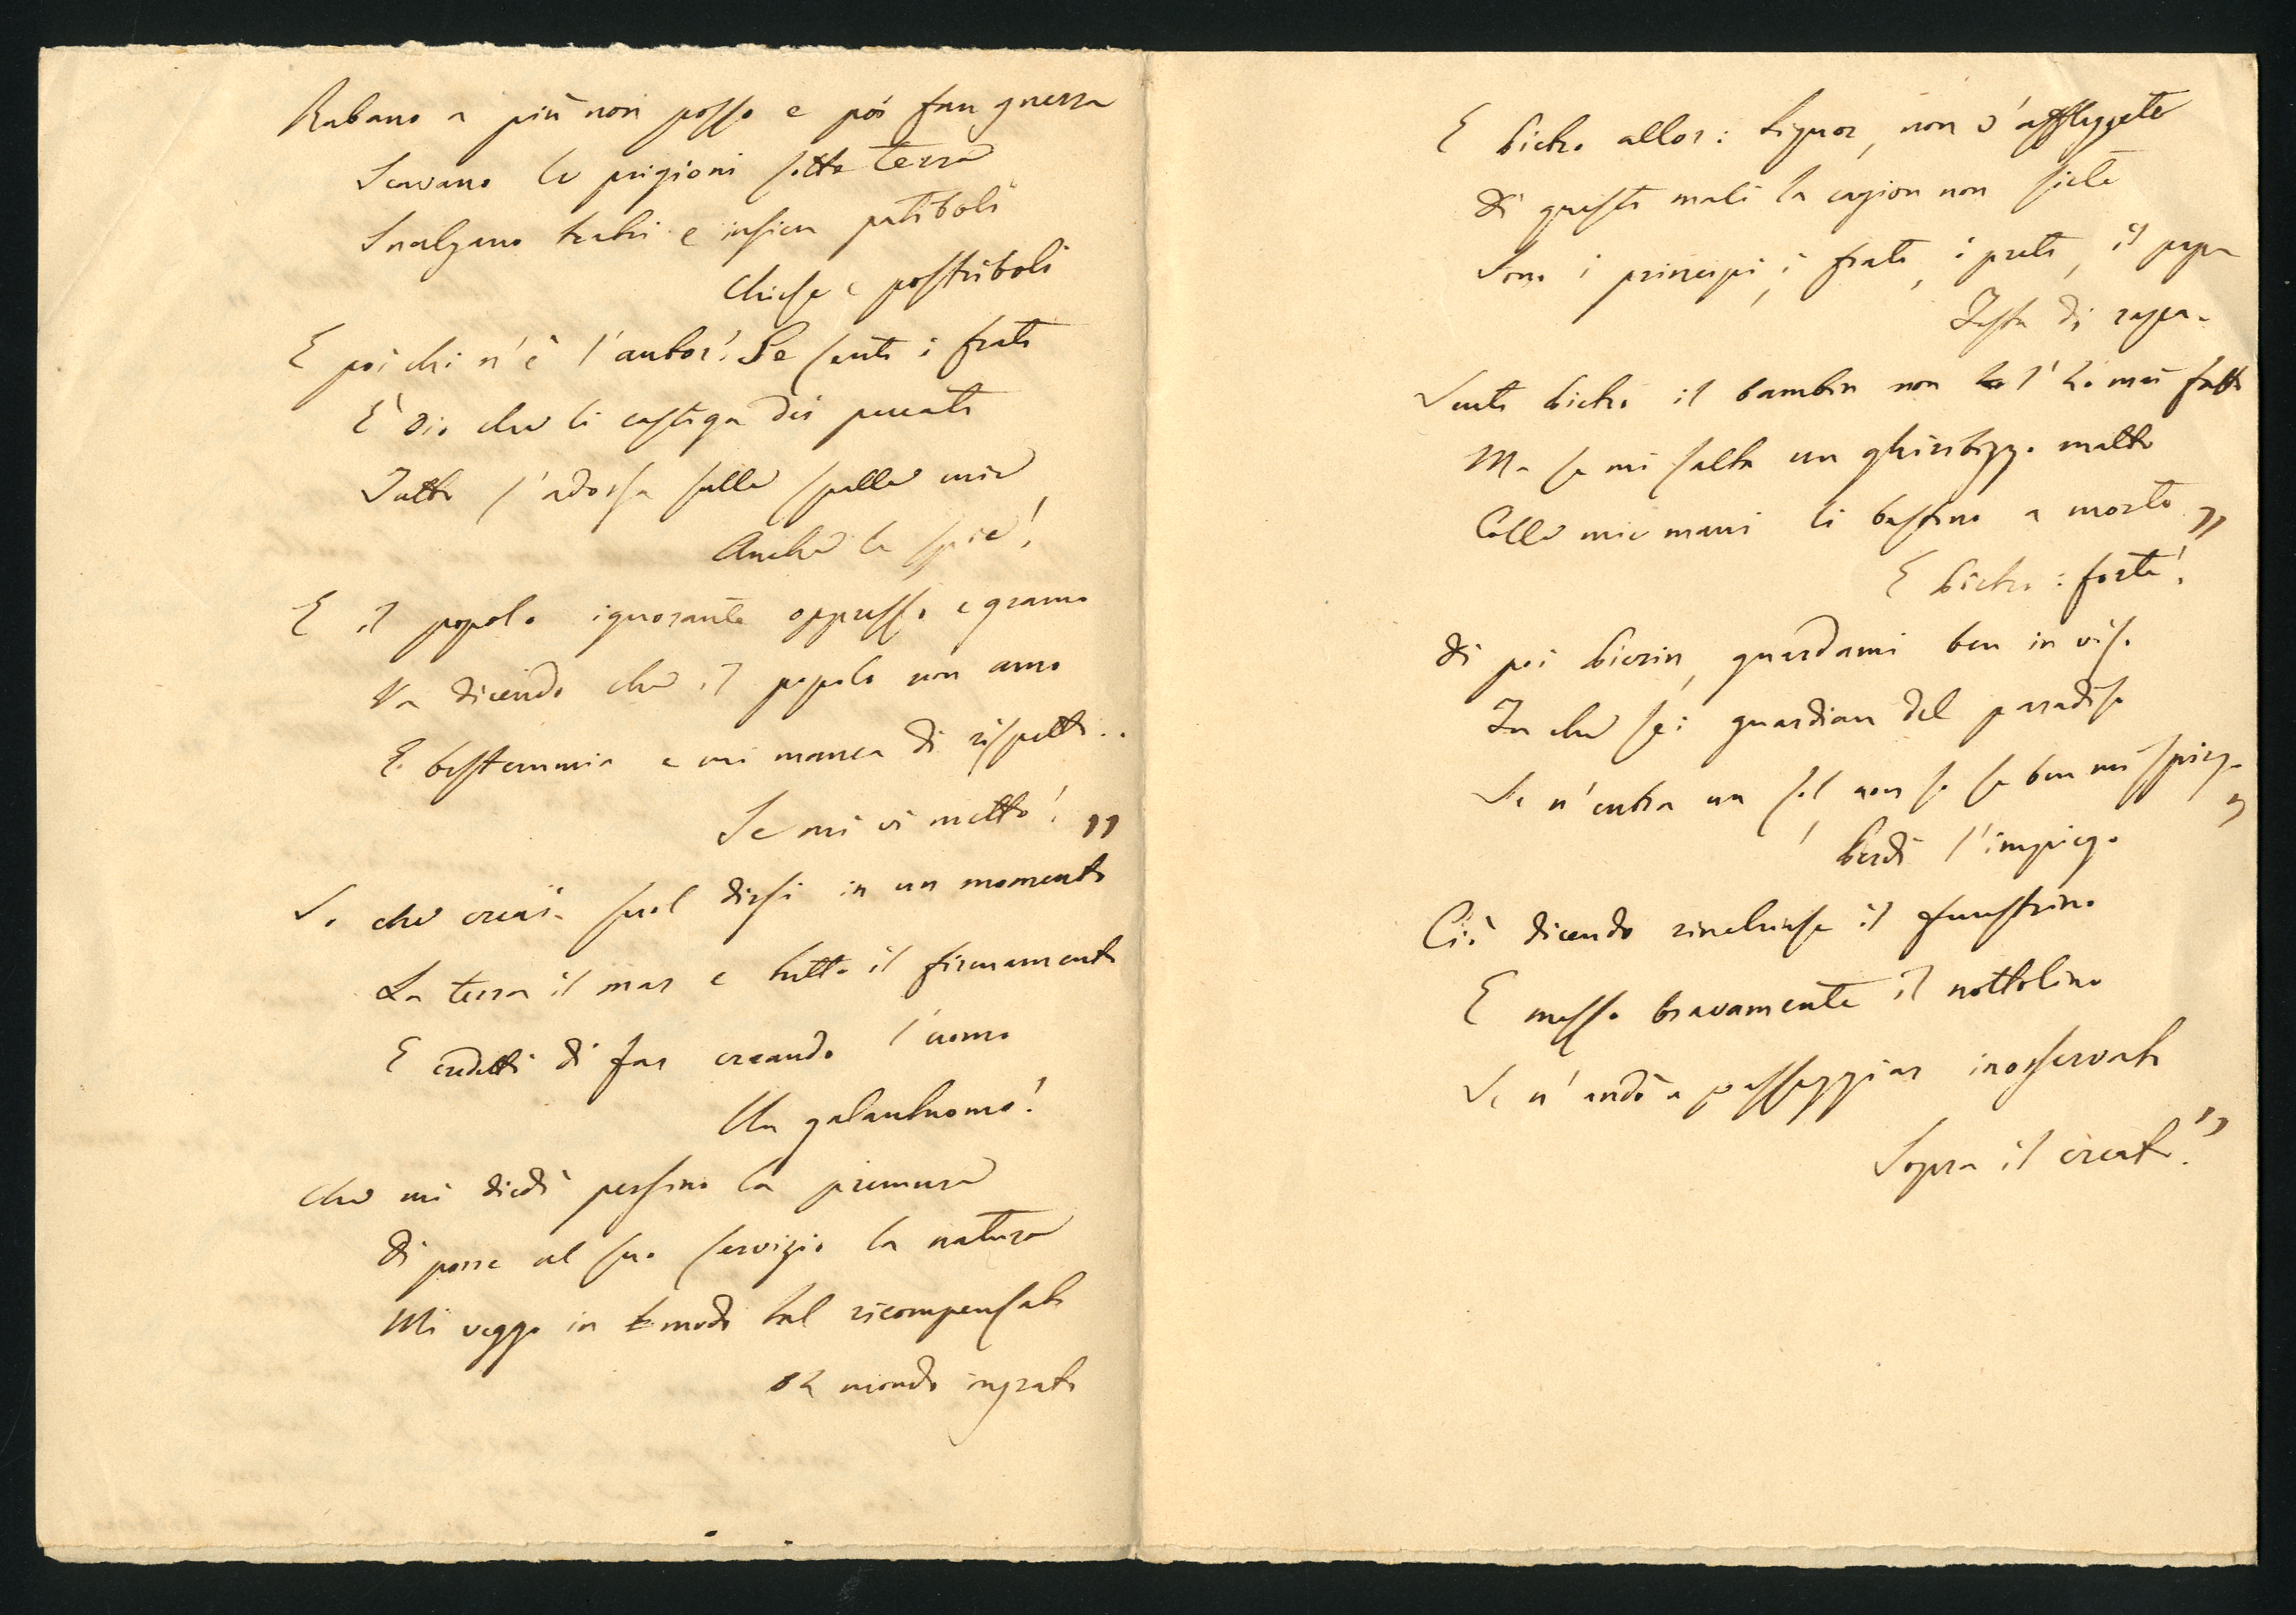 Rubano a più non posso e poi fan guerra
Scavano le prigioni sotto terra
Inalzano teatri e insiem patiboli
Chiese e postriboli
E poi chi n'è l'autor? Se senti i frati
È Dio che li castiga dei peccati
Tutto s'adossa sulle spalle mie
Anche le spie!
E il popolo ignorante oppresso e gramo
Va dicendo che il popolo non amo
E bestemmia e mi manca di rispetto..
Se mi ci metto! "
Io che creai - suol dirsi in un momento
La terra il mar e tutto il firmamento
E credetti di far creando l'uomo
Un galantuomo!
Che mi diedi persino la premura
Di porre al suo servizio la natura
Mi veggo in modo tal ricompensato
Oh mondo ingrato
E Pietro allor: Signor, non v'affliggete
Di questi mali la cagion non siete
Sono i principi, i frati, i preti, il papa
Testa di rapa.
Senti Pietro il bambin non l'ho mai fatto
Ma se mi salta un ghiribizzo matto
Colle mie mani li bastono a morte "
E Pietro: forte!
Di poi Pierin, guardami ben in viso
Tu che sei guardian del paradiso
Se n'entra un sol, non so se ben mi spiego
Perdi l'impiego "
Ciò dicendo rinchiuse il finestrino
E messo bravamente il nottolino
Se n'andò a passeggiar inosservato
Sopra il creato! "